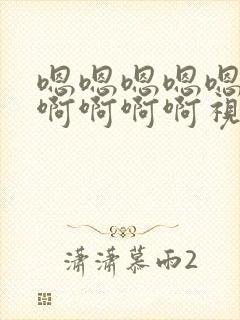 嗯嗯嗯嗯嗯
啊啊啊啊視
潇潇慕雨2